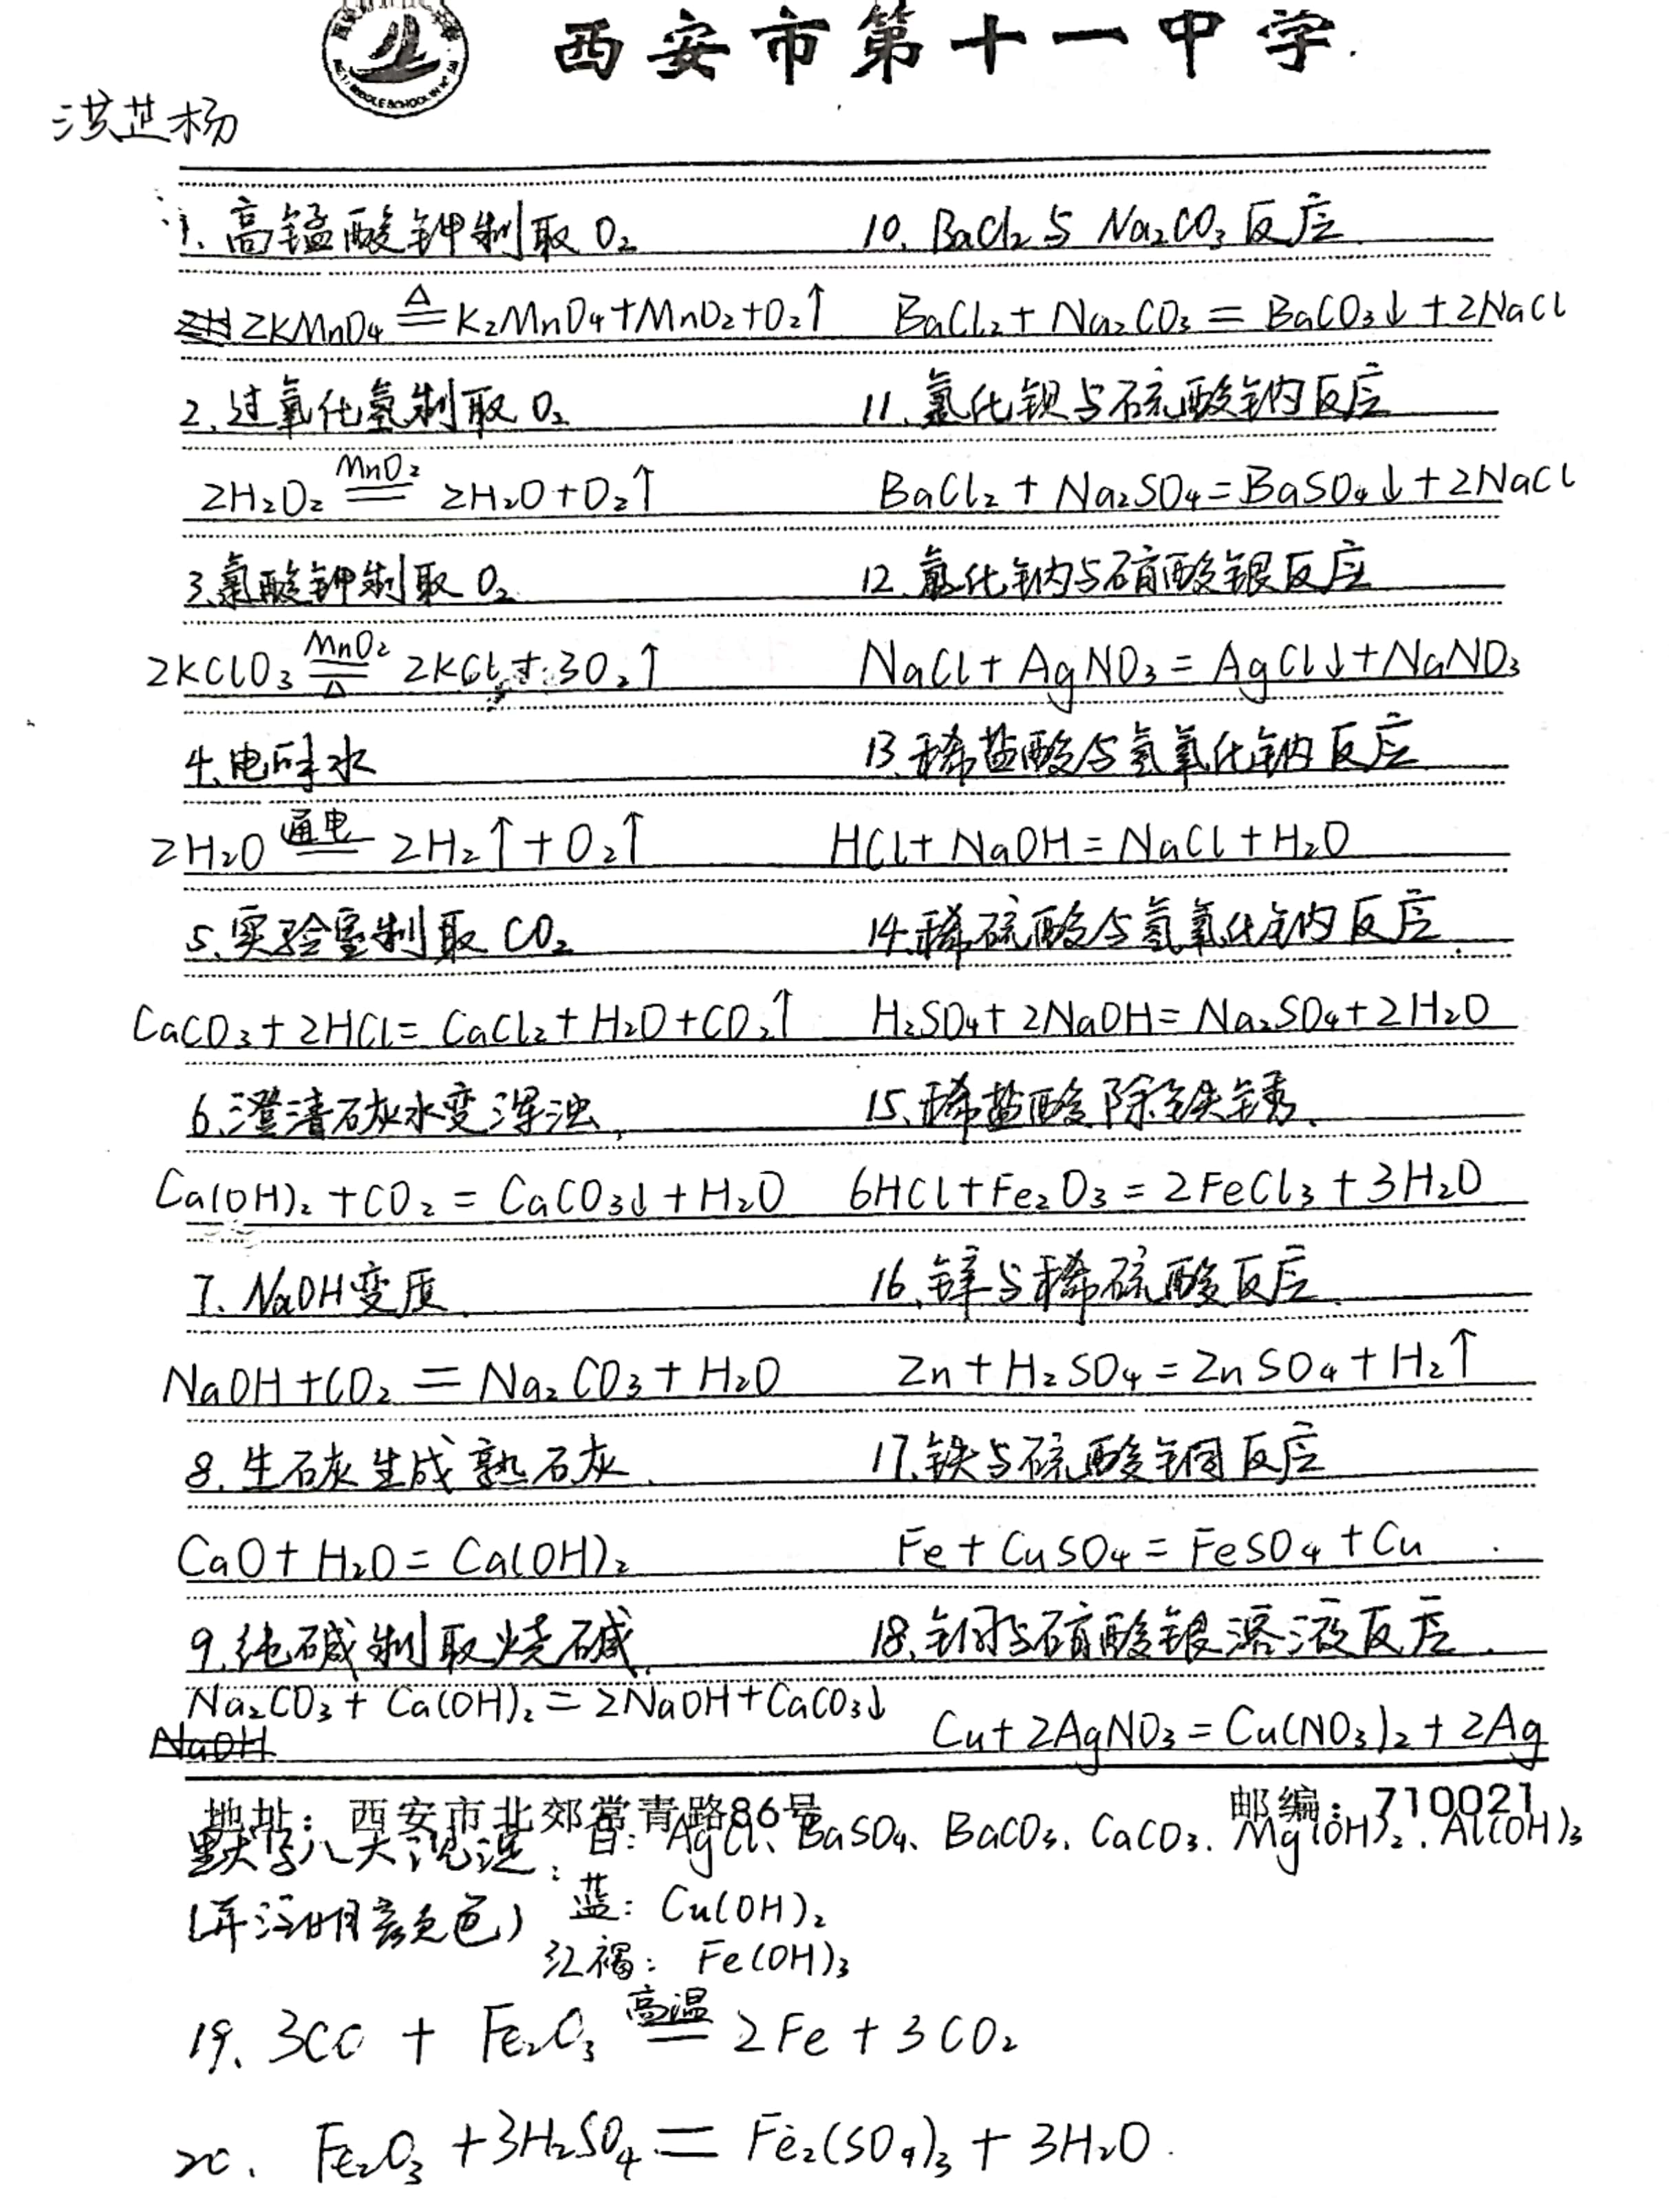 西安市第十一中学
洪芷杨
1、高锰酸钾制取 O₂
2KMnO₄ ≜ K₂MnO₄+MnO₂+O₂↑
2、过氧化氢制取 O₂
MnO₂
2H₂O₂ == 2H₂O+O₂↑
3、氯酸钾制取 O₂
MnO₂
2KClO₃ == 2KCl+3O₂↑
△
4、电解水
通电
2H₂O == 2H₂↑+O₂↑
5、实验室制取 CO₂
CaCO₃+2HCl=CaCl₂+H₂O+CO₂↑
6、澄清石灰水变浑浊
Ca(OH)₂+CO₂=CaCO₃↓+H₂O
7、NaOH变质
NaOH+CO₂=Na₂CO₃+H₂O
8、生石灰生成熟石灰
CaO+H₂O=Ca(OH)₂
9、纯碱制取烧碱
Na₂CO₃+Ca(OH)₂=2NaOH+CaCO₃↓
NaOH
10、BaCl₂与 Na₂CO₃反应
BaCl₂+Na₂CO₃=BaCO₃↓+2NaCl
11、氯化钡与硫酸钠反应
BaCl₂+Na₂SO₄=BaSO₄↓+2NaCl
12、氯化钠与硝酸银反应
NaCl+AgNO₃=AgCl↓+NaNO₃
13、稀盐酸与氢氧化钠反应
HCl+NaOH=NaCl+H₂O
14、稀硫酸与氢氧化钠反应
H₂SO₄+2NaOH=Na₂SO₄+2H₂O
15、稀盐酸除铁锈
6HCl+Fe₂O₃=2FeCl₃+3H₂O
16、锌与稀硫酸反应
Zn+H₂SO₄=ZnSO₄+H₂↑
17、铁与硫酸铜反应
Fe+CuSO₄=FeSO₄+Cu
18、铜与硝酸银溶液反应
Cu+2AgNO₃=Cu(NO₃)₂+2Ag
地址：西安市北郊常青路86号 邮编：710021
默写八大沉淀： 白：AgCl、BaSO₄、BaCO₃、CaCO₃、Mg(OH)₂、Al(OH)₃
(并注明颜色) 蓝：Cu(OH)₂
红褐：Fe(OH)₃
高温
19、3CO + Fe₂O₃ == 2Fe+3CO₂
20、Fe₂O₃+3H₂SO₄=Fe₂(SO₄)₃+3H₂O